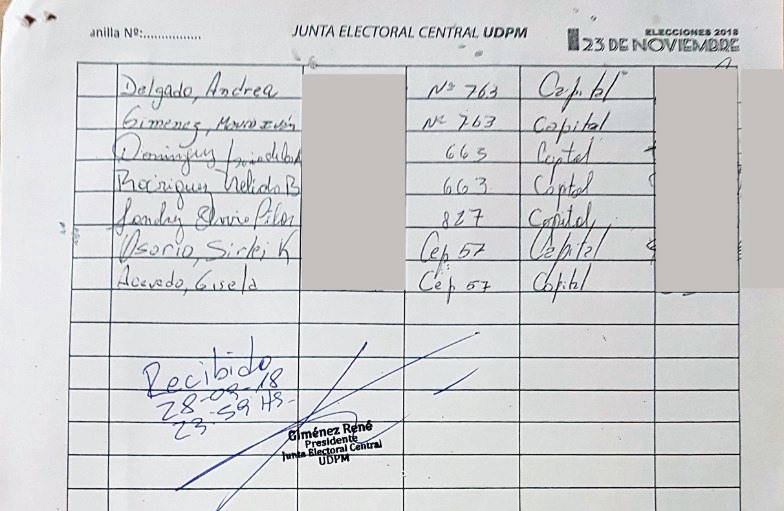 anilla Nº:................
JUNTA ELECTORAL CENTRAL UDPM
ELECCIONES 2018
23 DE NOVIEMBRE
Delgado, Andrea Nº 763 Capital
Gimenez, Mauro Iván Nº 763 Capital
Dominguez 665 Capital
Rodriguez Nelida B 663 Capital
Silvio Pilar 827 Capital
Osorio, Sirlei K Cep 57 Capital
Acevedo, Gisela Cep 57 Capital
Recibido
28-09-18
23-59 HS-
Giménez René
Presidente
Junta Electoral Central
UDPM